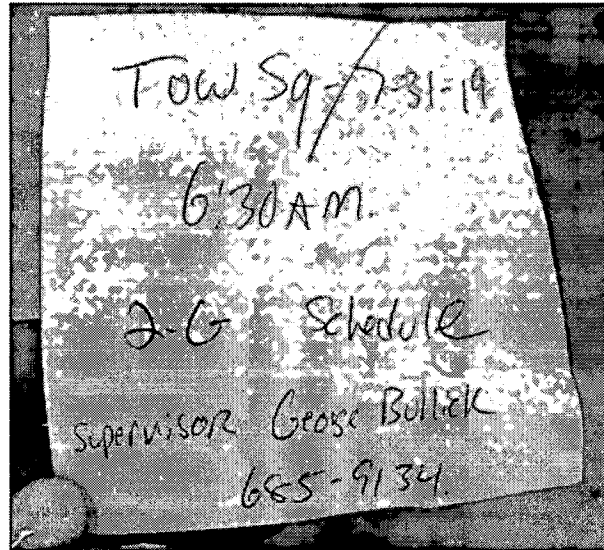 Tow Sq - 7-31-19
6:30 AM.
2-G Schedule
Supervisor George Bullick
685-9134.